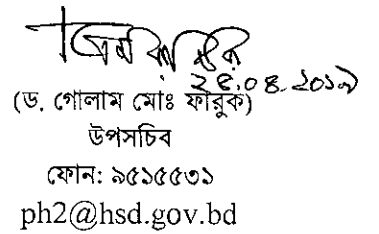 ২৫.০৪.২০১৯
(ড. গোলাম মোঃ ফারুক)
উপসচিব
ফোন: ৯৫১৫৫৩১
ph2@hsd.gov.bd